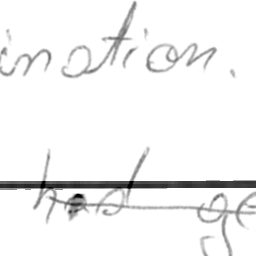 ination.
had ge